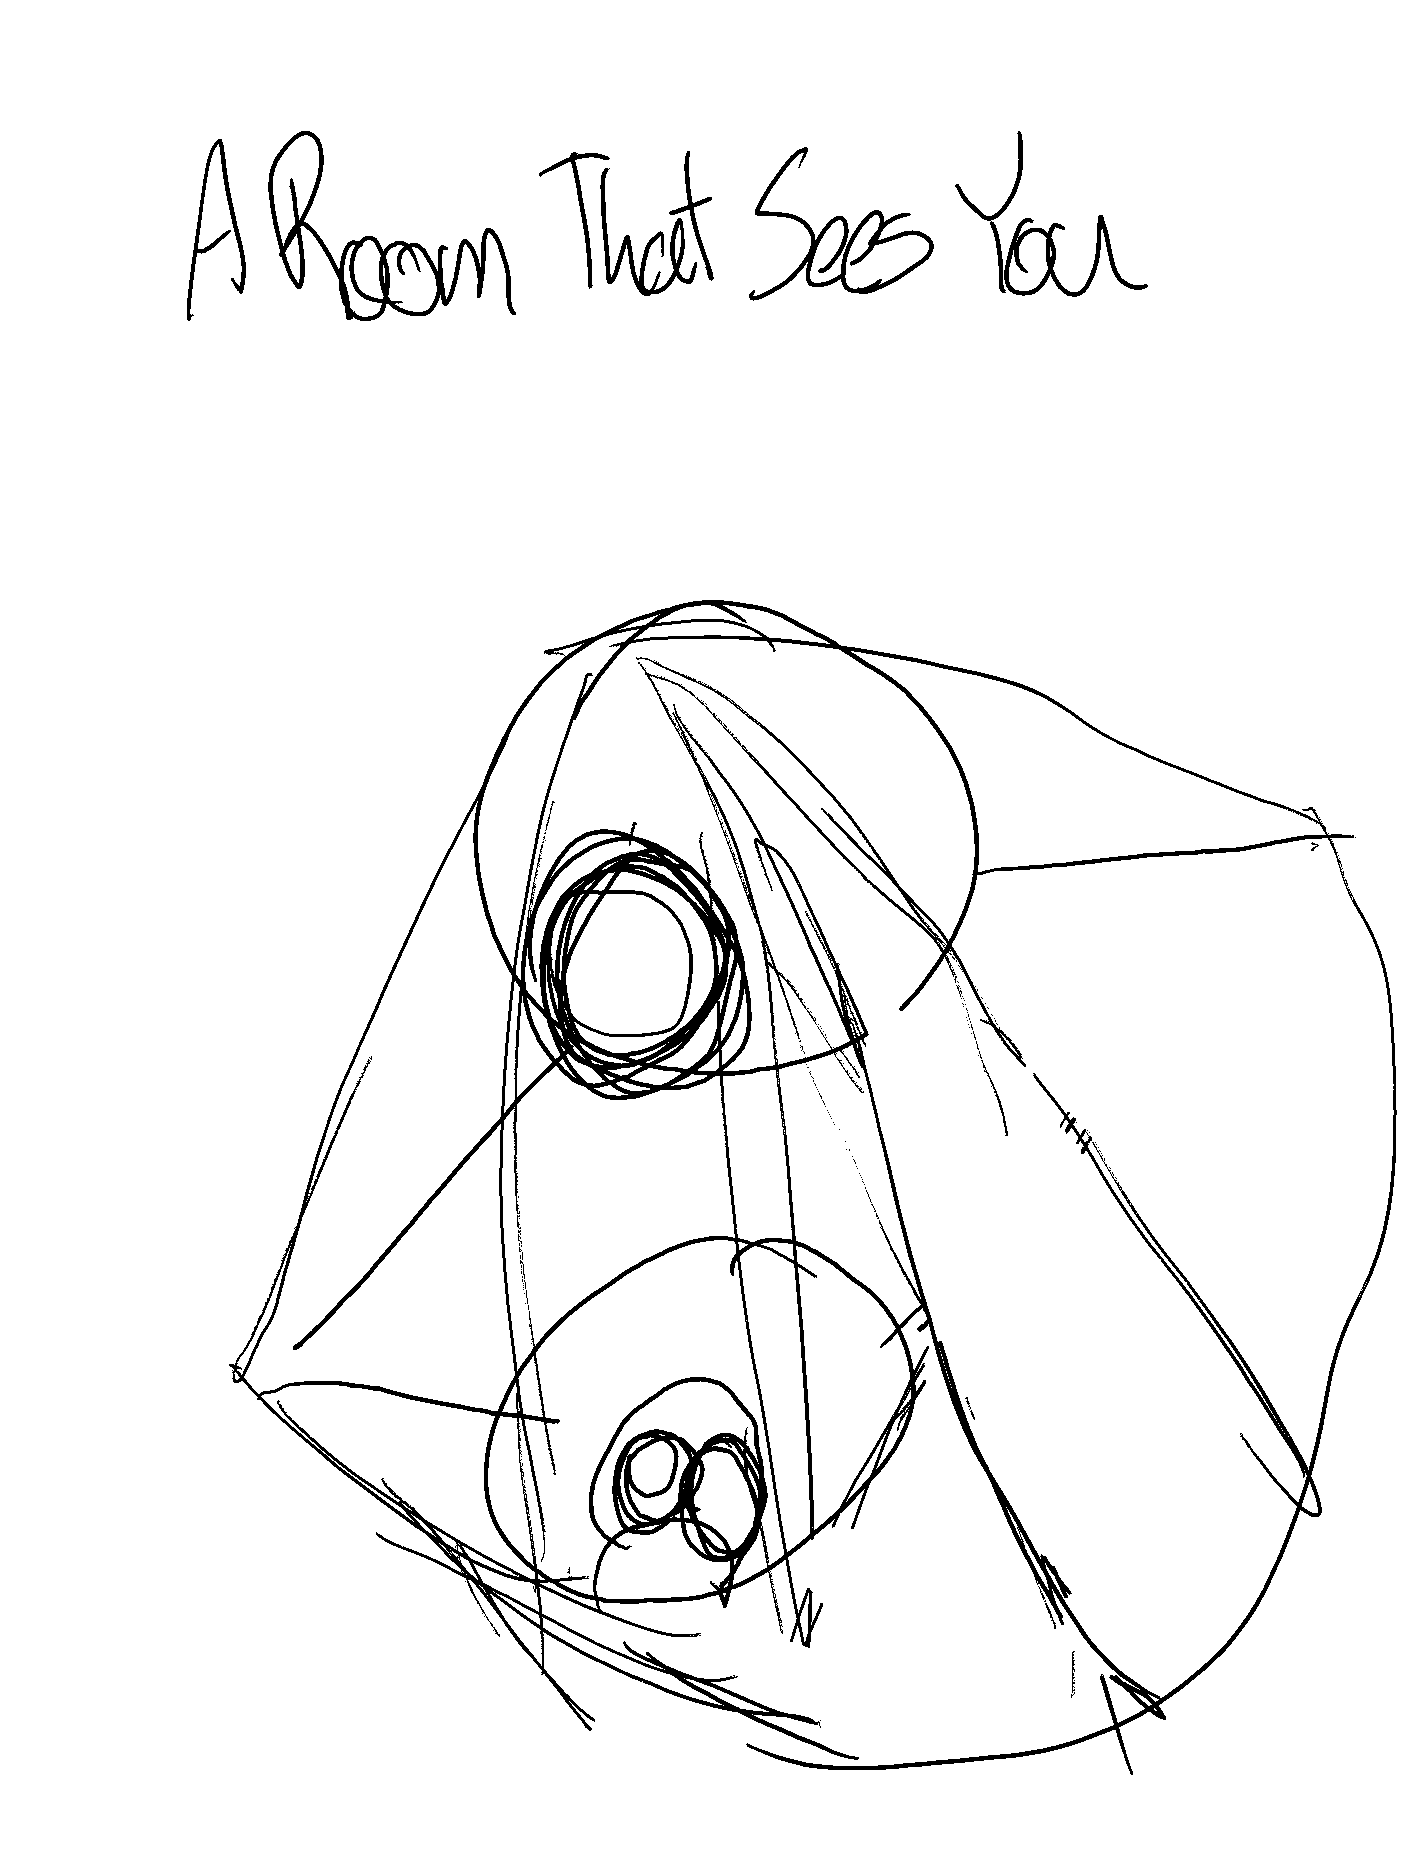 A Room That Sees You